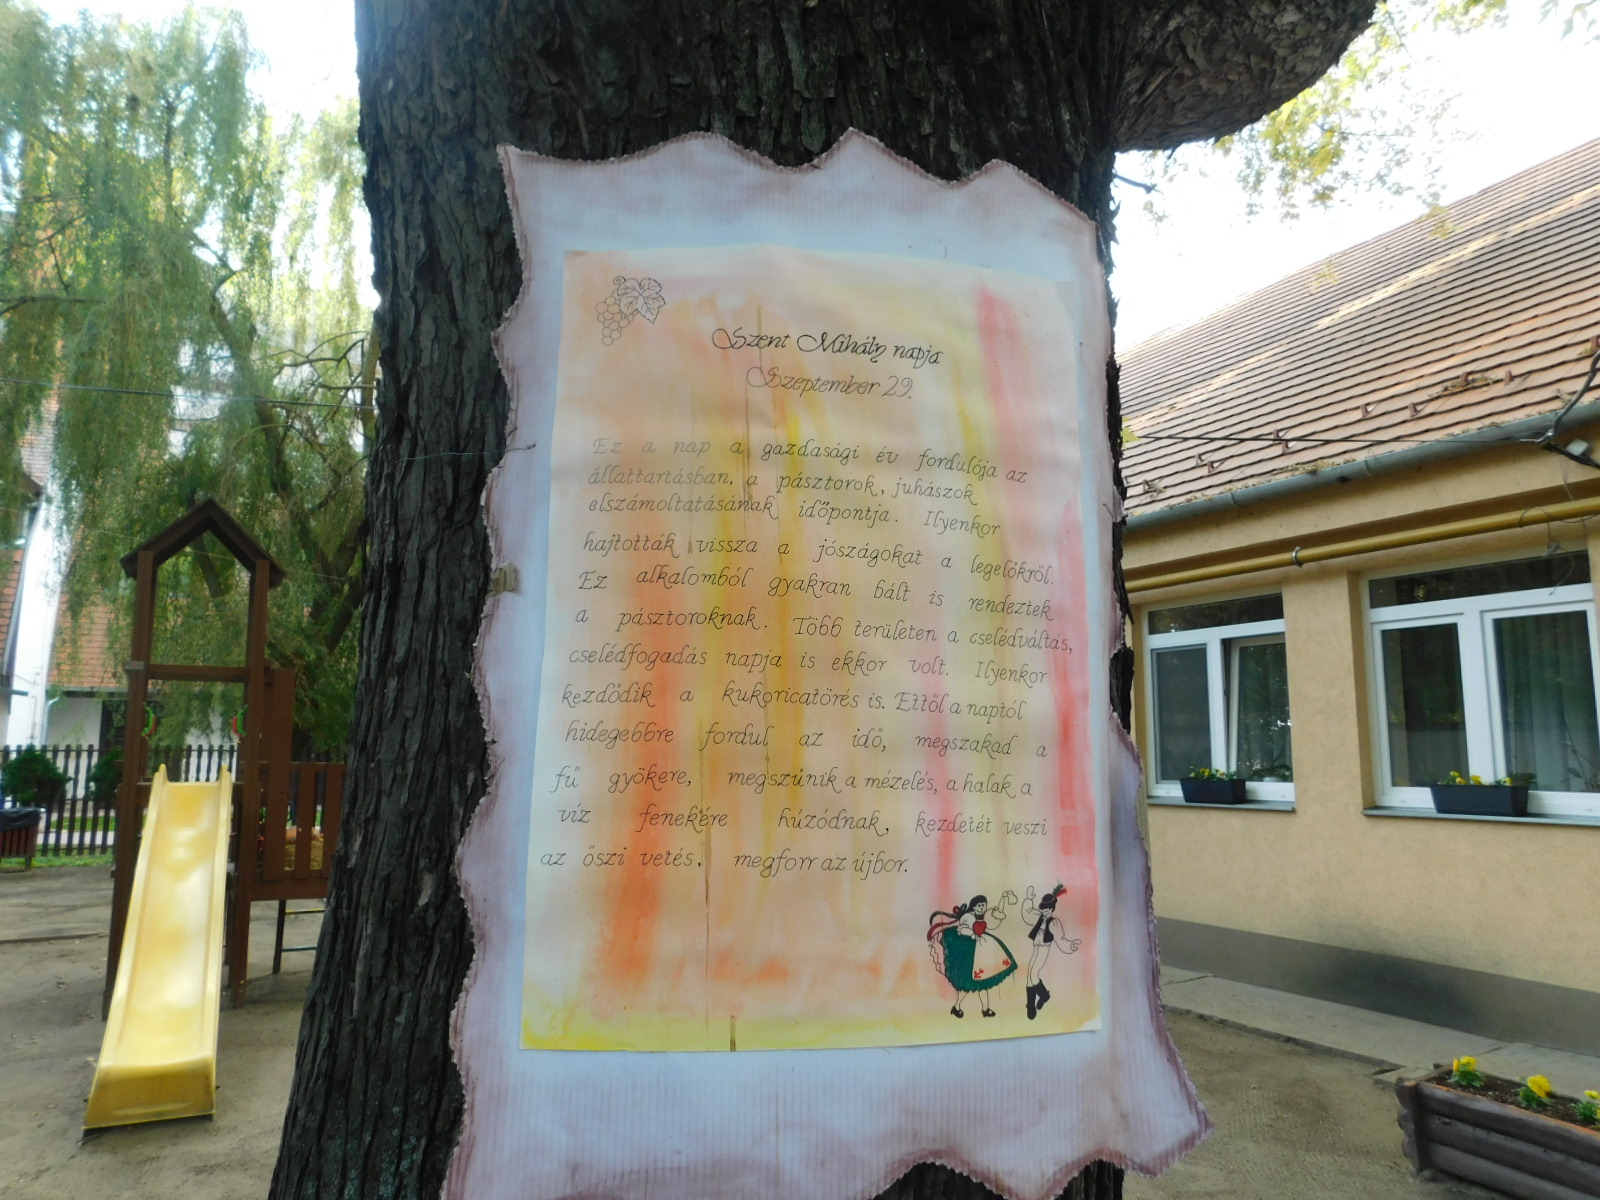 Szent Mihály napja
Szeptember 29.
Ez a nap a gazdasági év fordulója az
állattartásban, a pásztorok, juhászok
elszámoltatásának időpontja. Ilyenkor
hajtották vissza a jószágokat a legelőkről.
Ez alkalomból gyakran bált is rendeztek
a pásztoroknak. Több területen a cselédváltás,
cselédfogadás napja is ekkor volt. Ilyenkor
kezdődik a kukoricatörés is. Ettől a naptól
hidegebbre fordul az idő, megszakad a
fű gyökere, megszűnik a mézelés, a halak a
víz fenekére húzódnak, kezdetét veszi
az őszi vetés, megforr az újbor.